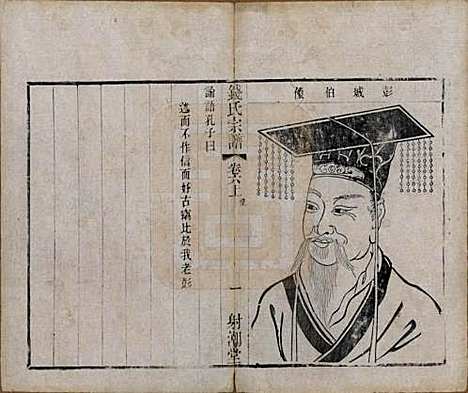 彭城伯像
錢氏宗譜
卷六上
一
射潮堂
論語孔子曰
述而不作信而好古竊比於我老彭